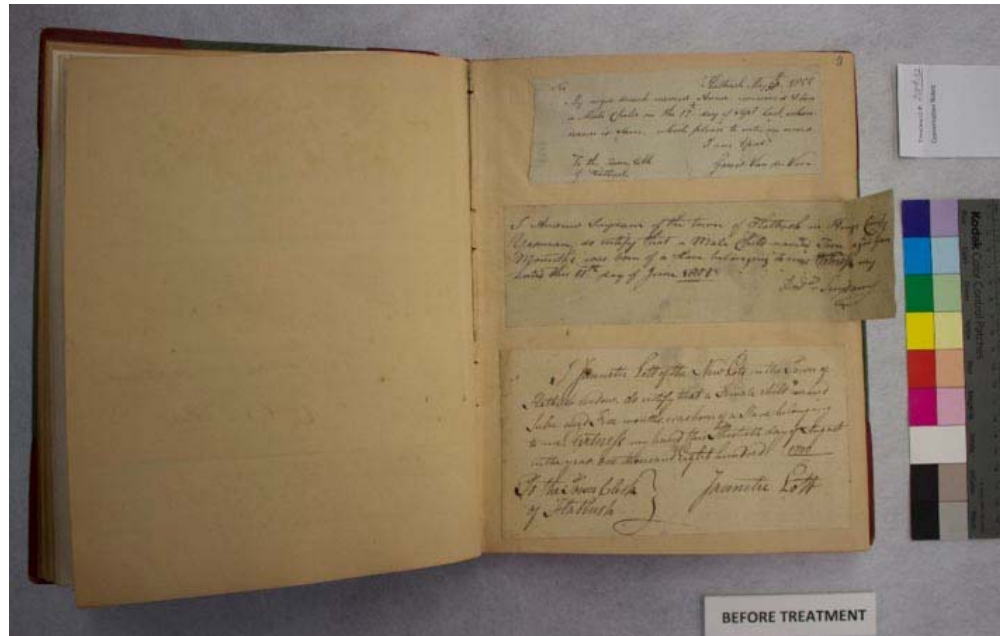 3
My negro wench named
a Male Child on the day of last, whose
name is which please to enter on record
I am
To the Town Clerk
of Flatbush
of the town of Flatbush in Kings County
Yeoman, do certify that a Male Child named Tom aged four
Months was born of a slave belonging to me Witness my
hand this 11th day of June
I Jannetie Lott of the New Lots in the Town of
Flatbush widow, do certify that a Female child named
aged months, was born of a Slave belonging
to me. Witness my hand this Thirtieth day of August
in the year one thousand eight hundred 1800
To the Town Clerk
of Flatbush
Jannetie Lott
Treatment #
Conservation Notes:
Kodak Color Control Patches
BEFORE TREATMENT